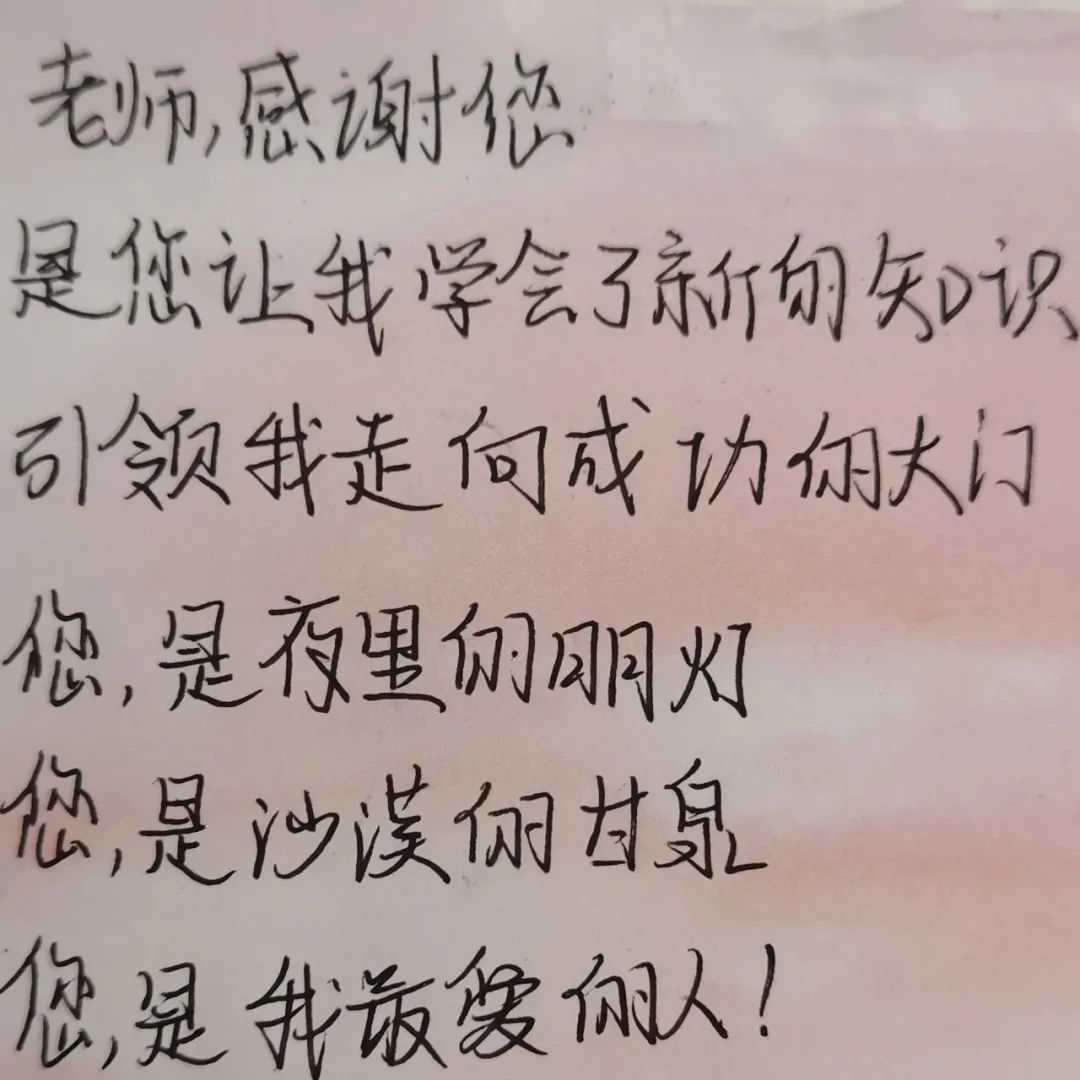 老师,感谢您
是您让我学会了新的知识
引领我走向成功的大门
您,是夜里的明灯
您,是沙漠的甘泉
您,是我最爱的人!